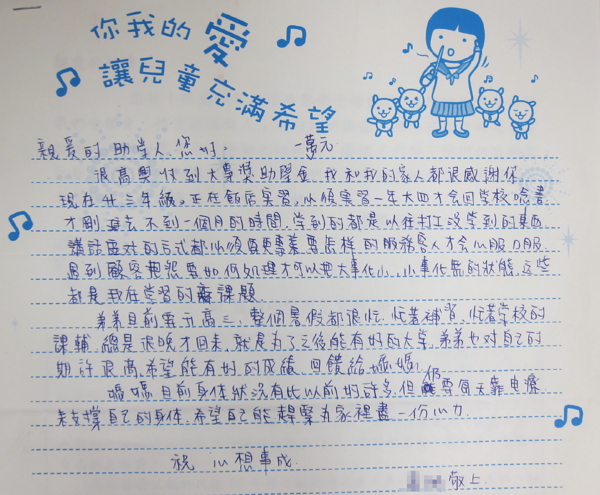 你我的愛
讓兒童充滿希望
親愛的助學人，您好：
一萬元
很高興收到大專獎助學金，我和我的家人都很感謝你
現在升三年級，正在飯店實習，必須實習一年大四才會回學校唸書
才剛過去不到一個月的時間，學到的都是以往打工沒學到的東西
講話應對的方式都必須更專業，要怎樣的服務客人才會心服口服
遇到顧客抱怨要如何處理才可以把大事化小、小事化無的狀態，這些
都是我在學習的課題
弟弟目前要升高三，整個暑假都很忙，忙著補習，忙著學校的
課輔，總是很晚才回來，就是為了之後能有好的大學，弟弟也對自己的
期許很高，希望能有好的成績，回饋給媽媽
媽媽目前身体狀況有比以前好許多，但仍需要每天靠电療
來支撐自己的身体，希望自己能趕緊為家裡盡一份心力
祝 心想事成
敬上